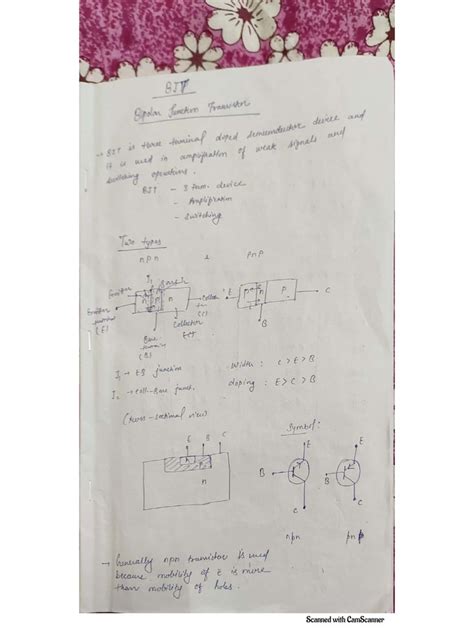 BJT
Bipolar Junction Transistor
→ BJT is three terminal doped semiconductor device and
it is used in amplification of weak signals and
switching operations.
BJT - 3 term. device
- Amplification
- Switching
Two types
npn & pnp
Emitter J1 Base
Emitter
(E)
n n
Collector
(C)
Collector
Base
(B)
E p n P C
B
J1 → EB junction width : C > E > B
J2 → Coll-Base junct. doping : E > C > B
(cross-sectional view) Symbol:
E B C
n
E E
B B
C C
npn pnp
→ Generally npn transistor is used
because mobility of e is more
than mobility of holes.
Scanned with CamScanner